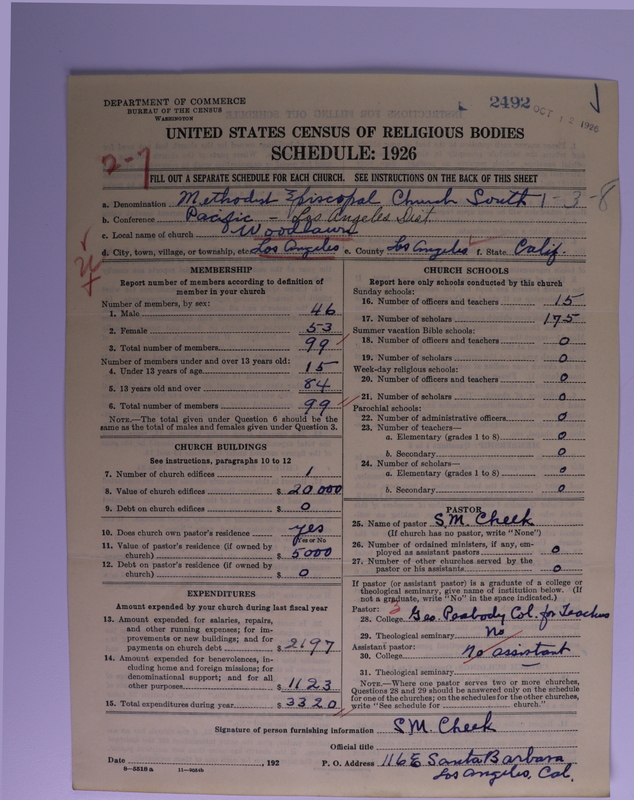 DEPARTMENT OF COMMERCE
BUREAU OF THE CENSUS
WASHINGTON
2492
OCT 12 1926
UNITED STATES CENSUS OF RELIGIOUS BODIES
SCHEDULE: 1926
2-7
FILL OUT A SEPARATE SCHEDULE FOR EACH CHURCH. SEE INSTRUCTIONS ON THE BACK OF THIS SHEET
a. Denomination Methodist Episcopal Church South 1-3-8
b. Conference Pacific - Los Angeles Dist.
c. Local name of church Woodlawn
d. City, town, village, or township, etc Los Angeles e. County Los Angeles f. State Calif.
MEMBERSHIP
Report number of members according to definition of
member in your church
Number of members, by sex:
1. Male 46
2. Female 53
3. Total number of members 99
Number of members under and over 13 years old:
4. Under 13 years of age 15
5. 13 years old and over 84
6. Total number of members 99
NOTE.—The total given under Question 6 should be the
same as the total of males and females given under Question 3.
CHURCH BUILDINGS
See instructions, paragraphs 10 to 12
7. Number of church edifices 1
8. Value of church edifices $ 20 000
9. Debt on church edifices $ 0
10. Does church own pastor's residence yes
Yes or No
11. Value of pastor's residence (if owned by
church) $ 5000
12. Debt on pastor's residence (if owned by
church) $ 0
EXPENDITURES
Amount expended by your church during last fiscal year
13. Amount expended for salaries, repairs,
and other running expenses; for im-
provements or new buildings; and for
payments on church debt $ 2197
14. Amount expended for benevolences, in-
cluding home and foreign missions; for
denominational support; and for all
other purposes $ 1123
15. Total expenditures during year $ 3320
CHURCH SCHOOLS
Report here only schools conducted by this church
Sunday schools:
16. Number of officers and teachers 15
17. Number of scholars 175
Summer vacation Bible schools:
18. Number of officers and teachers 0
19. Number of scholars 0
Week-day religious schools:
20. Number of officers and teachers 0
21. Number of scholars 0
Parochial schools:
22. Number of administrative officers 0
23. Number of teachers—
a. Elementary (grades 1 to 8) 0
b. Secondary 0
24. Number of scholars—
a. Elementary (grades 1 to 8) 0
b. Secondary 0
PASTOR
25. Name of pastor S.M. Cheek
(If church has no pastor, write "None")
26. Number of ordained ministers, if any, em-
ployed as assistant pastors 0
27. Number of other churches served by the
pastor or his assistants 0
If pastor (or assistant pastor) is a graduate of a college or
theological seminary, give name of institution below. (If
not a graduate, write "No" in the space indicated.)
Pastor: 3
28. College Geo. Peabody Col. for Teachers
29. Theological seminary No
Assistant pastor:
30. College no assistant
31. Theological seminary
NOTE.—Where one pastor serves two or more churches,
Questions 28 and 29 should be answered only on the schedule
for one of the churches; on the schedules for the other churches,
write "See schedule for church."
Signature of person furnishing information S.M. Cheek
Official title
Date , 192 P. O. Address 116 E Santa Barbara
Los Angeles, Cal.
8-5518 a